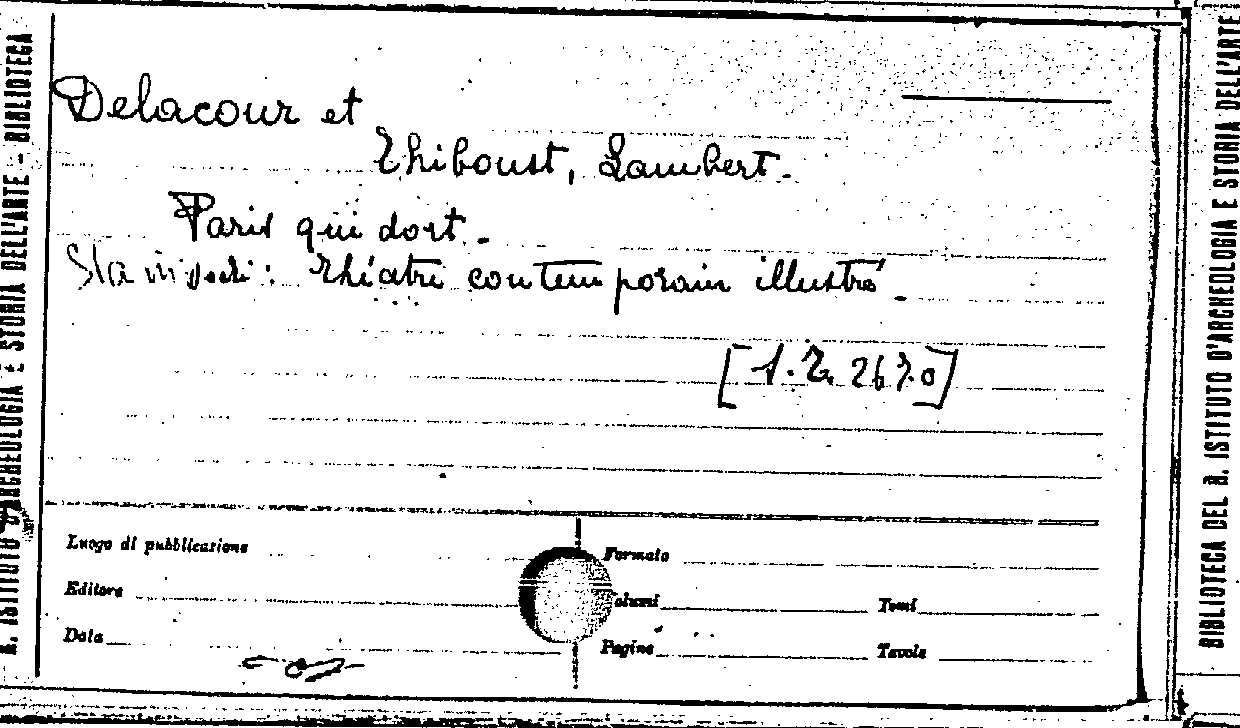 Delacour et
Thiboust, Lambert.
Paris qui dort.
Sta in: Théatre contemporain illustré.
[1.Z. 2670]
Luogo di pubblicazione
Formato
Editore
olumi
Tomi
Data
Pagine
Tavole
R. ISTITUTO D'ARCHEOLOGIA E STORIA DELL'ARTE - BIBLIOTECA
BIBLIOTECA DEL R. ISTITUTO D'ARCHEOLOGIA E STORIA DELL'ARTE